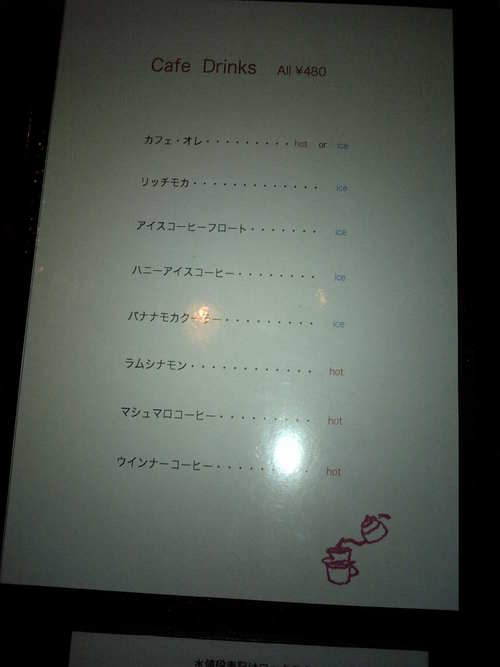 Cafe Drinks All ¥480
カフェ・オレ・・・・・・・・・hot or ice
リッチモカ・・・・・・・・・・・・・ ice
アイスコーヒーフロート・・・・・・・ ice
ハニーアイスコーヒー・・・・・・・・ ice
バナナモカクーラー・・・・・・・・・ ice
ラムシナモン・・・・・・・・・・・・ hot
マシュマロコーヒー・・・・・・・・・ hot
ウインナーコーヒー・・・・・・・・・ hot